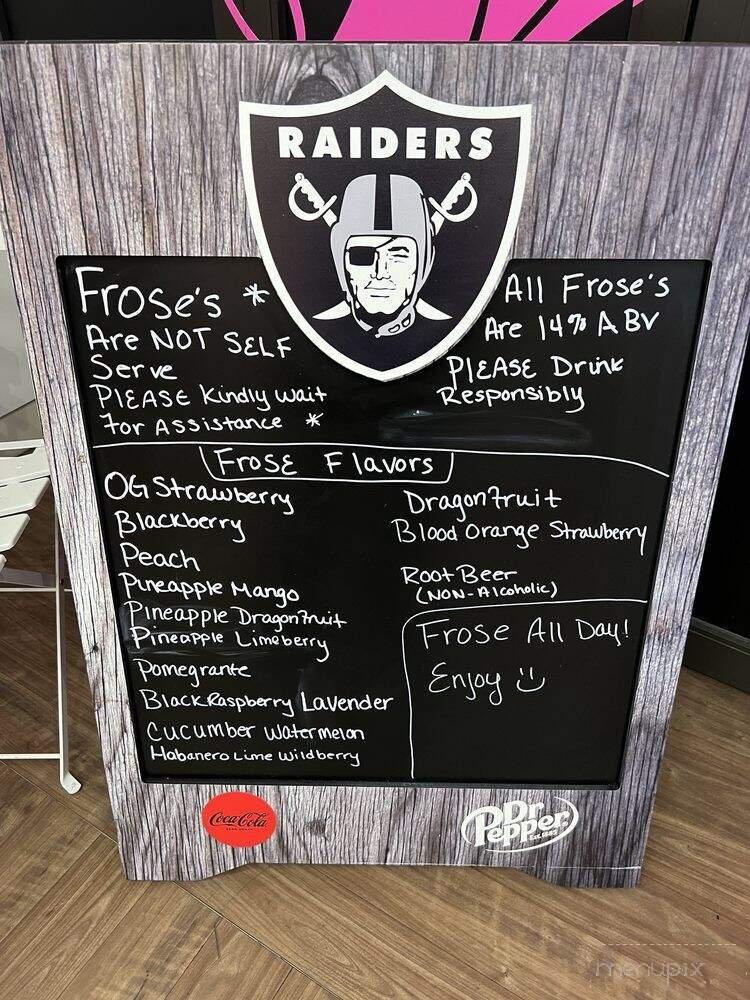 RAIDERS
Frose's *
Are NOT SELF
Serve
PlEASE Kindly wait
For Assistance *
All Frose's
Are 14% ABV
PlEASE Drink
Responsibly
Frose Flavors
OG Strawberry
Blackberry
Peach
Pineapple Mango
Pineapple Dragonfruit
Pineapple Limeberry
Pomegrante
Black Raspberry Lavender
Cucumber Watermelon
Habanero Lime Wildberry
Dragonfruit
Blood Orange Strawberry
Root Beer
(NON-Alcoholic)
Frose All Day!
Enjoy
Coca-Cola
Dr
Pepper
Est. 1885
menupix